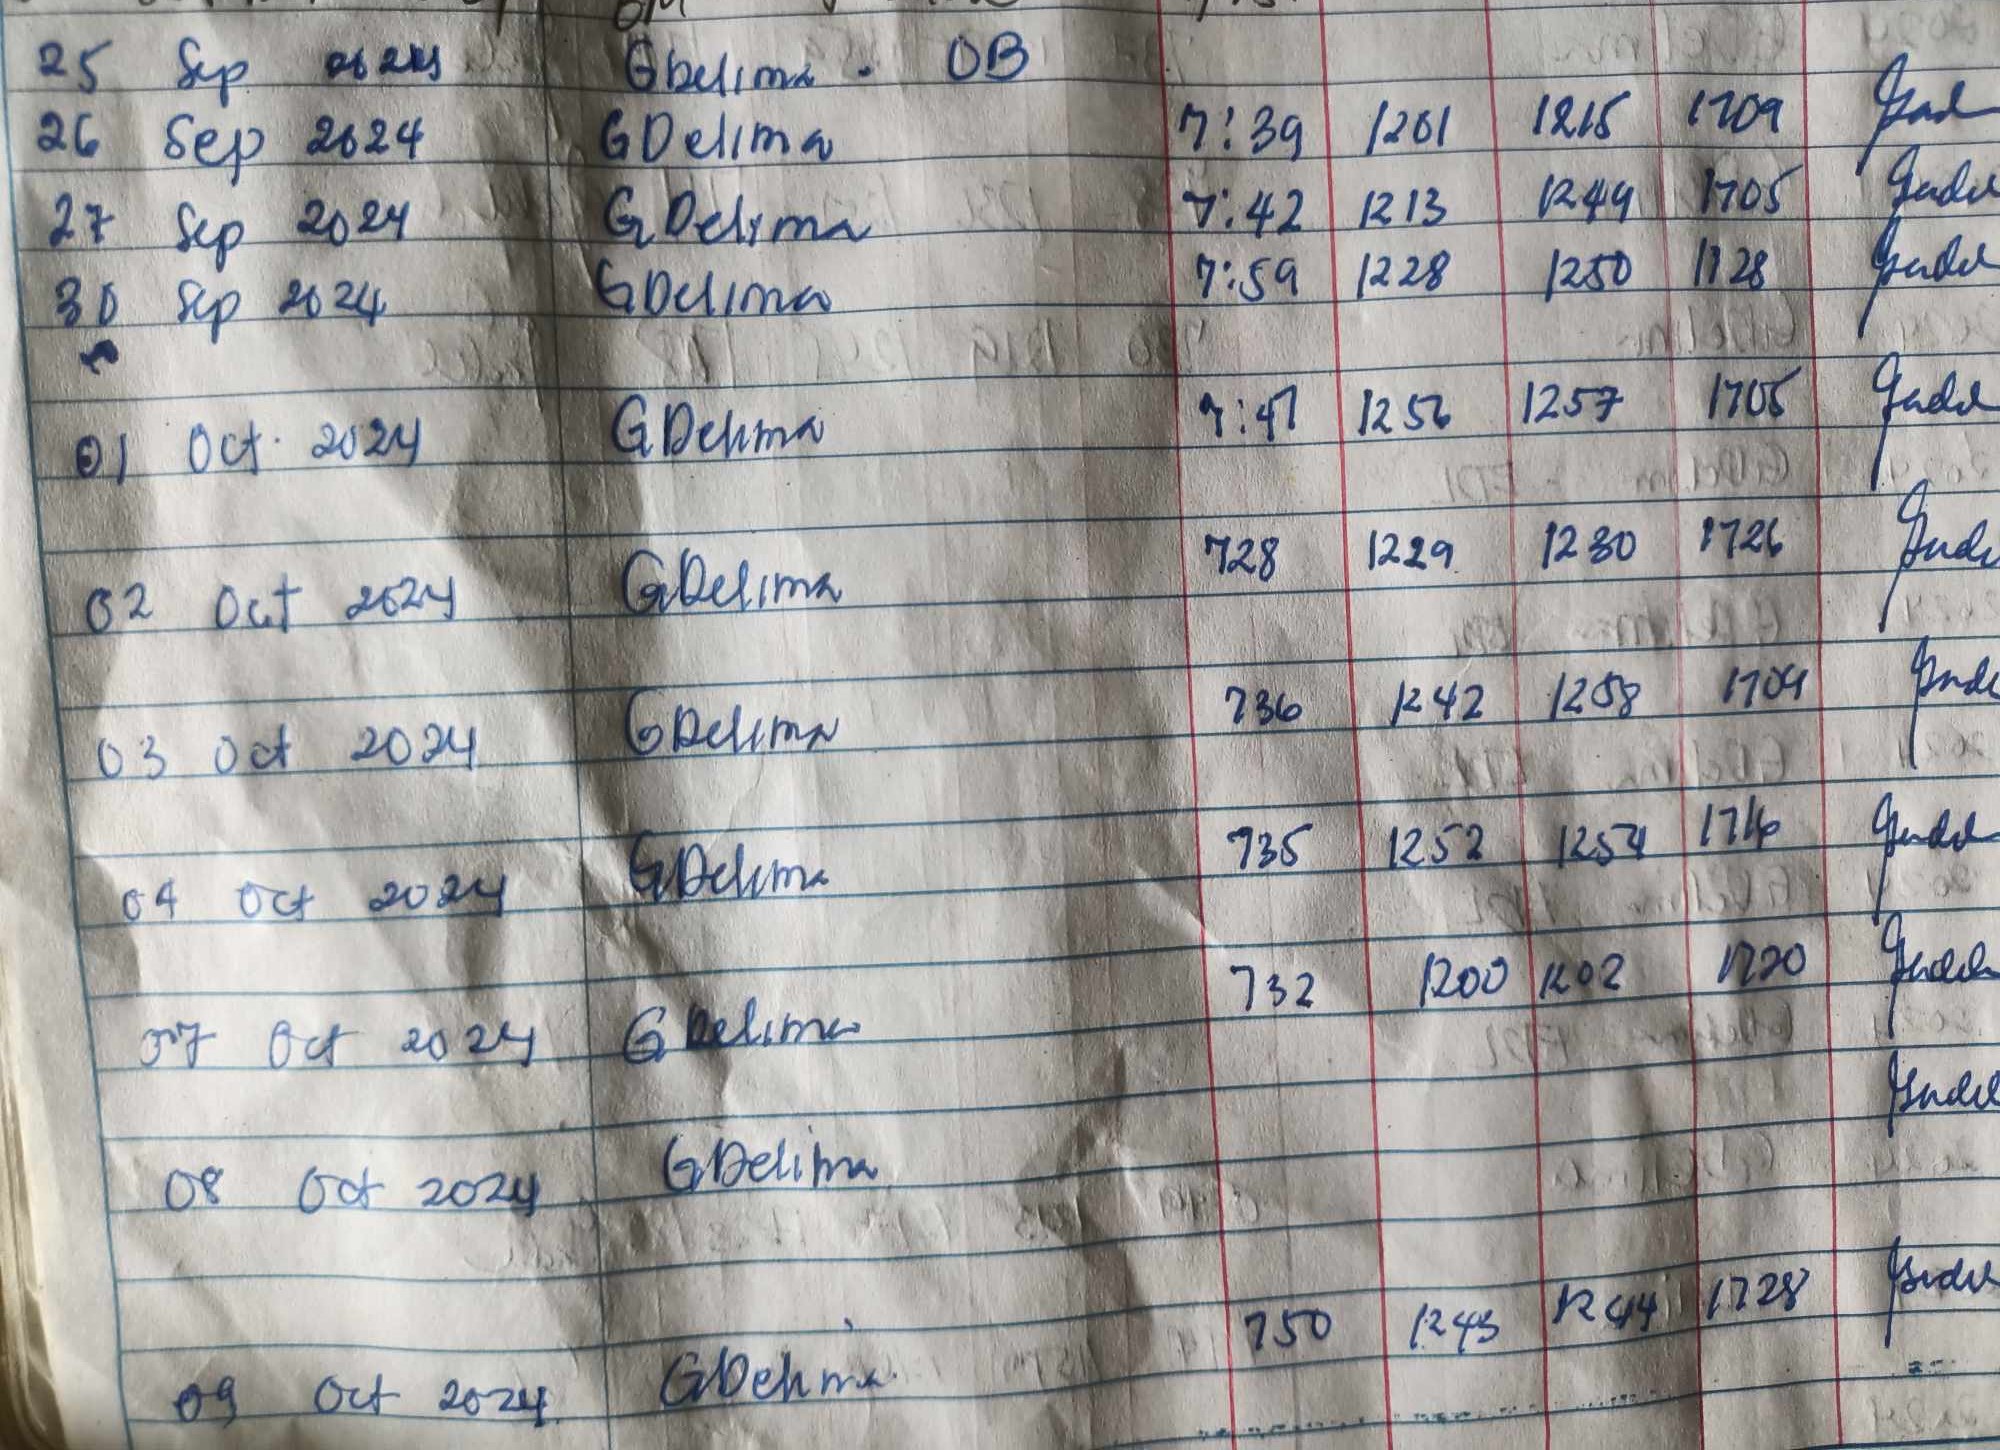 25 Sep 2024 GDelima. OB
26 Sep 2024 GDelima 7:39 1201 1215 1709
27 Sep 2024 GDelima 7:42 1213 1249 1705
30 Sep 2024 GDelima 7:59 1228 1250 1728
01 Oct. 2024 GDelima 7:47 1256 1257 1705
02 Oct 2024 GDelima 728 1229 1230 1726
03 Oct 2024 GDelima 736 1242 1258 1704
04 Oct 2024 GDelima 735 1252 1254 1716
07 Oct 2024 GDelima 732 1200 1202 1720
08 Oct 2024 GDelima
09 Oct 2024 GDelima 750 1243 1244 1728